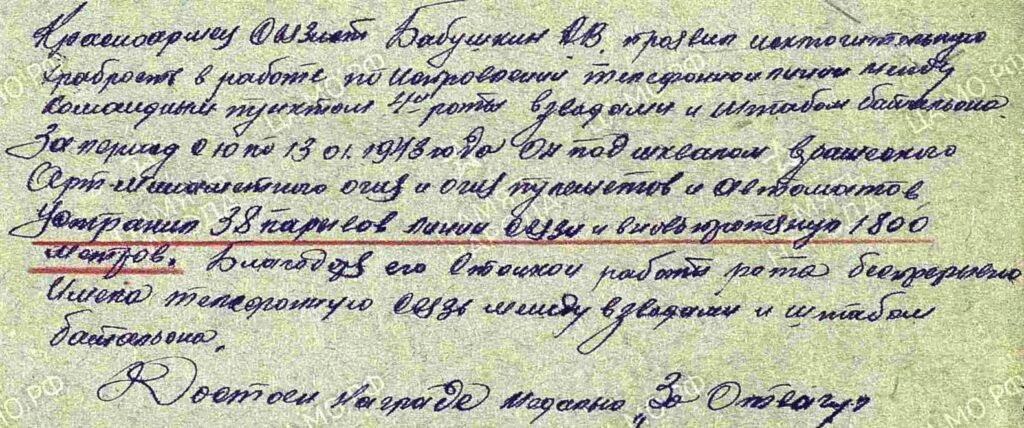 Красноармец Связист Бабушкин А.В. проявил исключительную
храбрость в работе по исправлении телефонной линии между
командным пунктом 4ой роты взводами и штабом батальона
За период с 10 по 13 01. 1943 года Он под шквалом вражеского
Арт. минометного огня и огня пулеметов и автоматов
устранил 38 парывов линии связи и вновь протянул 1800
метров. Благодоря его Стойкой работи рота беспрерывно
Имела телефонную связь между взводами и штабом
батальона.
Достоен Награде медалью „За Отвагу"